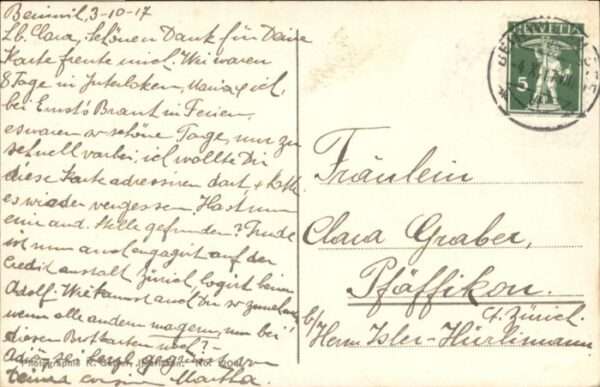 Beinwil, 3-10-17
Lb. Clara, Schönen Dank für Deine
Karte freute mich. Wir waren
8 Tage in Interlaken, Maria & ich,
bei Ernst's Braut in Ferien,
es waren so schöne Tage, nur zu
schnell vorbei, ich wollte Dir
diese Karte adressieren dort, &
es wieder vergessen. Hast nun
eine and. Stelle gefunden? Trude
ist nun auch engagirt auf der
Creditanstalt Zürich, logirt beim
Adolf. Wie kannst auch Du so zunehmen,
wenn alle andern magern, nun bei
diesen Brotkarten noch? -
Adieu sei herzl. gegrüsst von
Deiner Martha.
Photographie
No.
HELVETIA
5
Fräulein
Clara Graber,
Pfäffikon.
Ct. Zürich.
b/ Herrn Isler-Hürlimann